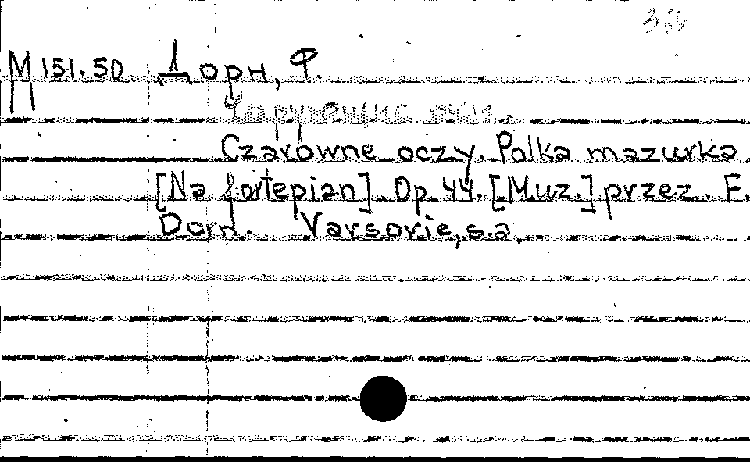 M 151.50 Дорн, Ф.
Чарующие
Czarowne oczy. Polka mazurka
[Na fortepian]. Op. 44. [Muz.] przez. F.
Dorn. Varsovie, s.a.